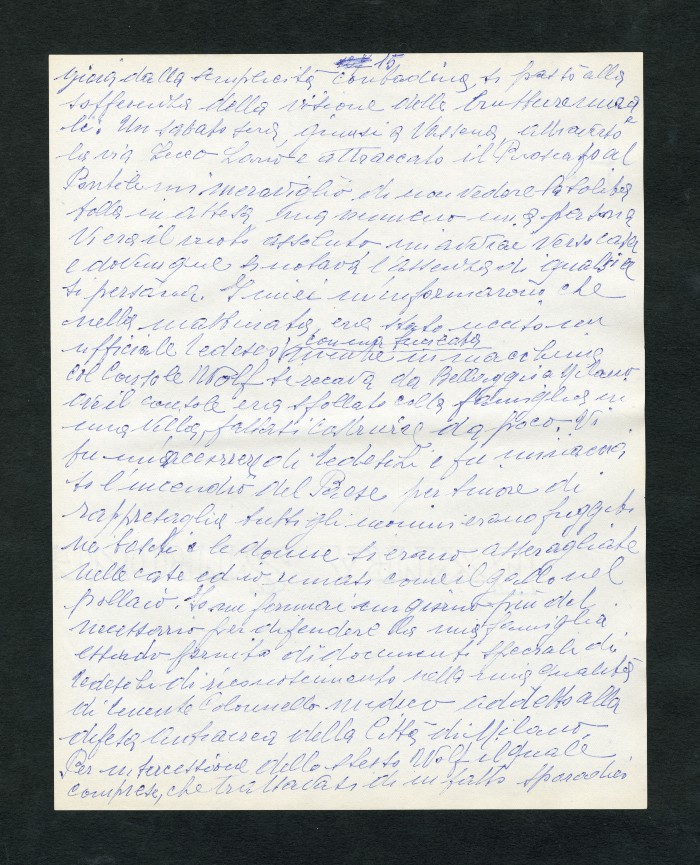 15
gina dalla semplicità contadina, si passò alla
sofferenza della visione delle brutture uma
ne. Un sabato sera, giunsi a Vassena, attraverso
la via Lecco Lario e attraccato il Piroscafo al
Pontile mi meravigliò di non vedere la solita
folla in attesa, ma nemeno mia persona
Vi era il vuoto assoluto mi avviai verso casa
e dovunque si notava l'assenza di qualsia
si persona. I miei m'informarono che
nella mattinata, era stato ucciso un
ufficiale tedesco, con una fucilata
mentre in macchina
col Console Wolf si recava da Bellaggio a Milano
ove il console era sfollato colla famiglia in
una villa, fattasi costruire da poco. Vi
fu un'accorrere di tedeschi e fu minaccia
to l'incendio del Paese per timore di
rappresaglia tutti gli uomini erano fuggiti
nei boschi e le donne si erano asseragliate
nelle case ed io rimasi come il gallo nel
pollaio. Io mi fermai un giorno più del
necessario per difendere la mia famiglia
essendo fornito di documenti speciali di
tedeschi di riconoscimento nella mia qualità
di tenente Colonnello medico addetto alla
difesa Antiaerea della Città di Milano
Per intercessione dello stesso Wolf il quale
comprese, che trattavasi di un fatto sporadico